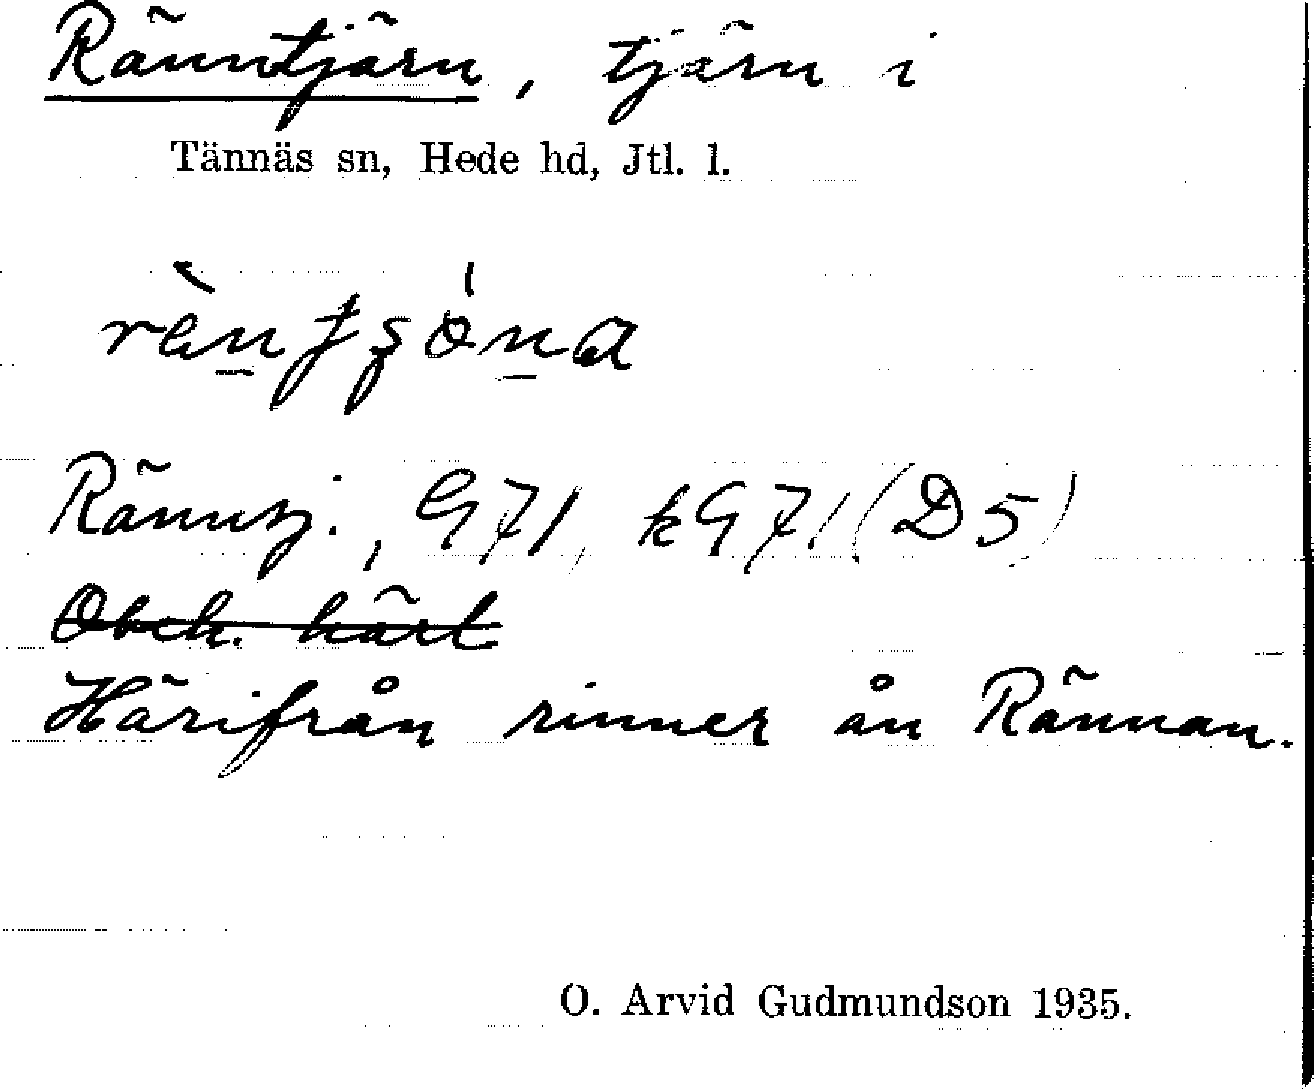 Ränntjärn, tjärn i
Tännäs sn, Hede hd, Jtl. l.
rèntʂóna
Ränntj., G71, kG71 (D5)
Obeh. härl
Härifrån rinner ån Rännan.
O. Arvid Gudmundson 1935.